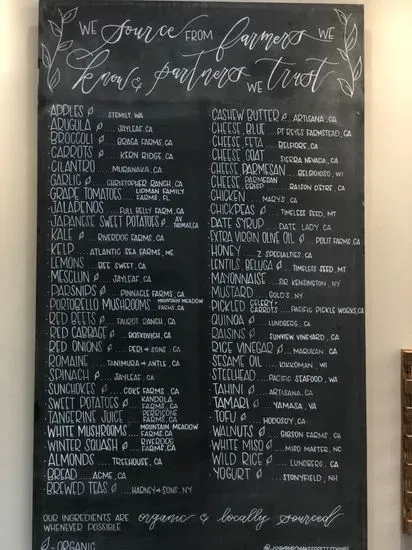 WE source FROM farmers WE
know & partners WE trust
APPLES .... STEMILT, WA
ARUGULA .... JAYLEAF, CA
BROCCOLI .... BRAGA FARMS, CA
CARROTS .... KERN RIDGE, CA
CILANTRO .... MURANAKA, CA
GARLIC .... CHRISTOPHER RANCH, CA
GRAPE TOMATOES .... LIPMAN FAMILY FARMS, FL
JALAPENOS .... FULL BELLY FARM, CA
JAPANESE SWEET POTATOES .... AV THOMAS, CA
KALE .... RIVERDOG FARMS, CA
KELP .... ATLANTIC SEA FARMS, ME
LEMONS .... BEE SWEET, CA
MESCLUN .... JAYLEAF, CA
PARSNIPS .... PINNACLE FARMS, CA
PORTOBELLO MUSHROOMS .. MOUNTAIN MEADOW FARMS, CA
RED BEETS .... RANCH, CA
RED CABBAGE .... BOSKOVICH, CA
RED ONIONS .... PERI & SONS, CA
ROMAINE .... TANIMURA & ANTLE, CA
SPINACH .... JAYLEAF, CA
SUNCHOKES .... COKE FARMS, CA
SWEET POTATOES .... KANDOLA FARMS, CA
TANGERINE JUICE .... PERRICONE FARMS, CA
WHITE MUSHROOMS .... MOUNTAIN MEADOW FARMS, CA
WINTER SQUASH .... RIVERDOG FARMS, CA
ALMONDS .... TREEHOUSE, CA
BREAD .... ACME, CA
BREWED TEAS .... HARNEY & SONS, NY
CASHEW BUTTER .... ARTISANA, CA
CHEESE, BLUE .... PT REYES FARMSTEAD, CA
CHEESE, FETA .... BELFIORE, CA
CHEESE, GOAT .... SIERRA NEVADA, CA
CHEESE, PARMESAN .... BELGIOIOSO, WI
CHEESE PARMESAN CRISP .... RAISON D'ETRE, CA
CHICKEN .... MARY'S, CA
CHICKPEAS .... TIMELESS SEED, MT
DATE SYRUP .... DATE LADY, CA
EXTRA VIRGIN OLIVE OIL .... POLIT FARMS, CA
HONEY .... Z SPECIALTIES, CA
LENTILS, BELUGA .... TIMELESS SEED, MT
MAYONNAISE .... SIR KENSINGTON, NY
MUSTARD .... GOLD'S, NY
PICKLED CELERY & CARROTS .... PACIFIC PICKLE WORKS, CA
QUINOA .... LUNDBERG, CA
RAISINS .... SUNVIEW VINEYARD, CA
RICE VINEGAR .... MARUKAN, CA
SESAME OIL .... KIKKOMAN, WI
STEELHEAD .... PACIFIC SEAFOOD, WA
TAHINI .... ARTISANA, CA
TAMARI .... YAMASA, VA
TOFU .... HODOSOY, CA
WALNUTS .... GIBSON FARMS, CA
WHITE MISO .... MISO MASTER, NC
WILD RICE .... LUNDBERG, CA
YOGURT .... STONYFIELD, NH
OUR INGREDIENTS ARE organic & locally sourced
WHENEVER POSSIBLE
- ORGANIC